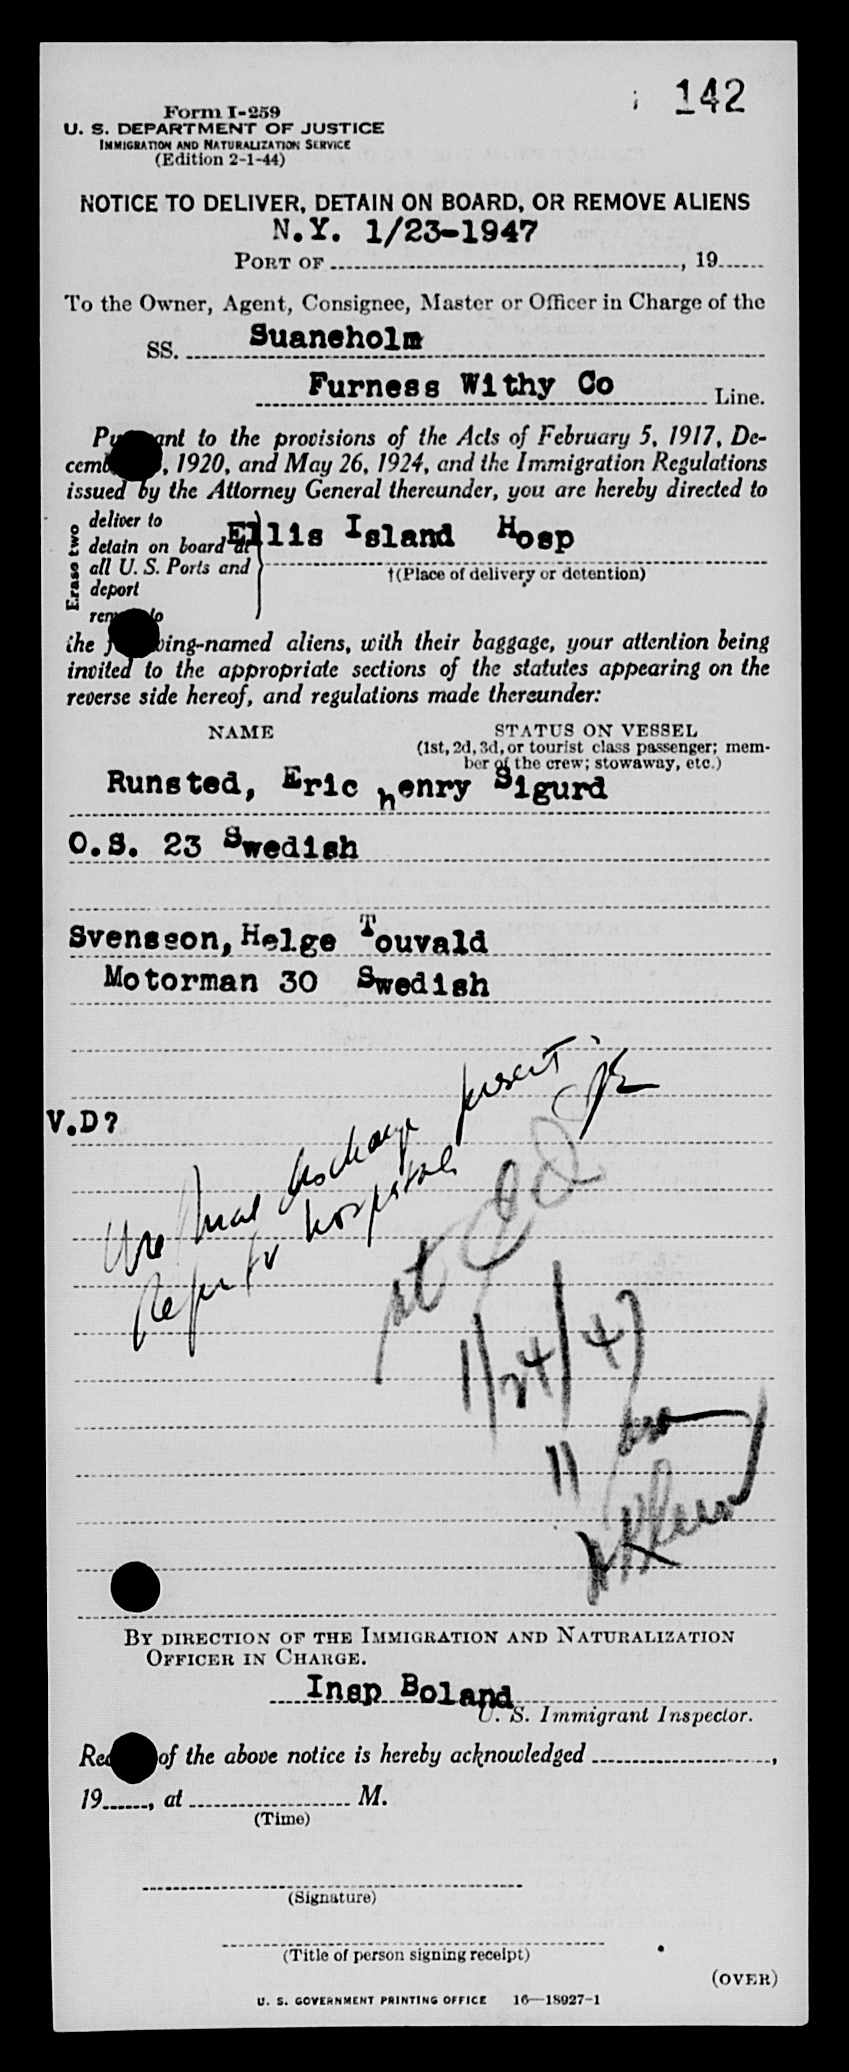 142
Form I-259
U. S. DEPARTMENT OF JUSTICE
IMMIGRATION AND NATURALIZATION SERVICE
(Edition 2-1-44)
NOTICE TO DELIVER, DETAIN ON BOARD, OR REMOVE ALIENS
N.Y. 1/23-1947
PORT OF , 19
To the Owner, Agent, Consignee, Master or Officer in Charge of the
SS. Suaneholm
Furness Withy Co Line.
to the provisions of the Acts of February 5, 1917, De-
, 1920, and May 26, 1924, and the Immigration Regulations
issued by the Attorney General thereunder, you are hereby directed to
Erase two
deliver to
detain on board at
all U. S. Ports and
deport
Ellis Island Hosp
†(Place of delivery or detention)
the -named aliens, with their baggage, your attention being
invited to the appropriate sections of the statutes appearing on the
reverse side hereof, and regulations made thereunder:
NAME
STATUS ON VESSEL
(1st, 2d, 3d, or tourist class passenger; mem-
ber of the crew; stowaway, etc.)
Runsted, Eric henry Sigurd
O.S. 23 Swedish
Svensson, Helge Touvald
Motorman 30 Swedish
V.D?
discharge
hospital
at
1/24/47
11
BY DIRECTION OF THE IMMIGRATION AND NATURALIZATION
OFFICER IN CHARGE.
Insp Boland
U. S. Immigrant Inspector.
of the above notice is hereby acknowledged ,
19 , at M.
(Time)
(Signature)
(Title of person signing receipt)
(OVER)
U. S. GOVERNMENT PRINTING OFFICE 16—18927-1